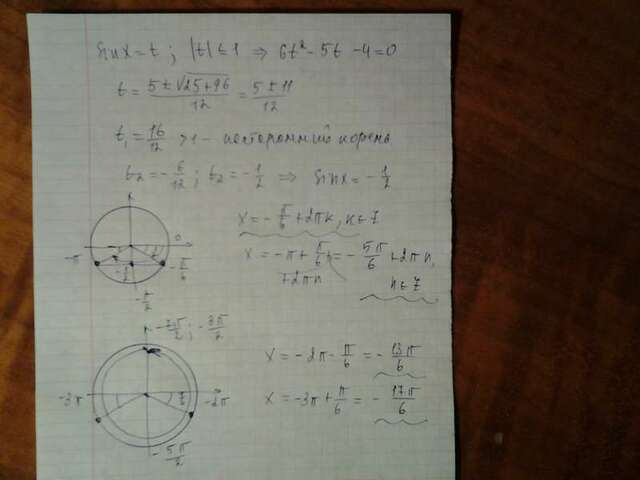 sin x = t ; |t| ≤ 1 ⇒ 6t² - 5t - 4 = 0
t = (5 ± √(25+96))/12 = (5 ± 11)/12
t₁ = 16/12 > 1 - посторонний корень
t₂ = -6/12 ; t₂ = -1/2 ⇒ sin x = -1/2
x = -π/6 + 2πk, k ∈ Z
x = -π + π/6 + 2πn = -5π/6 + 2πn, n ∈ Z
0
-π
-1/2
-π/6
-π/2
-7π/2 ; -3π/2
x = -2π - π/6 = -13π/6
-3π
-2π
x = -3π + π/6 = -17π/6
-5π/2